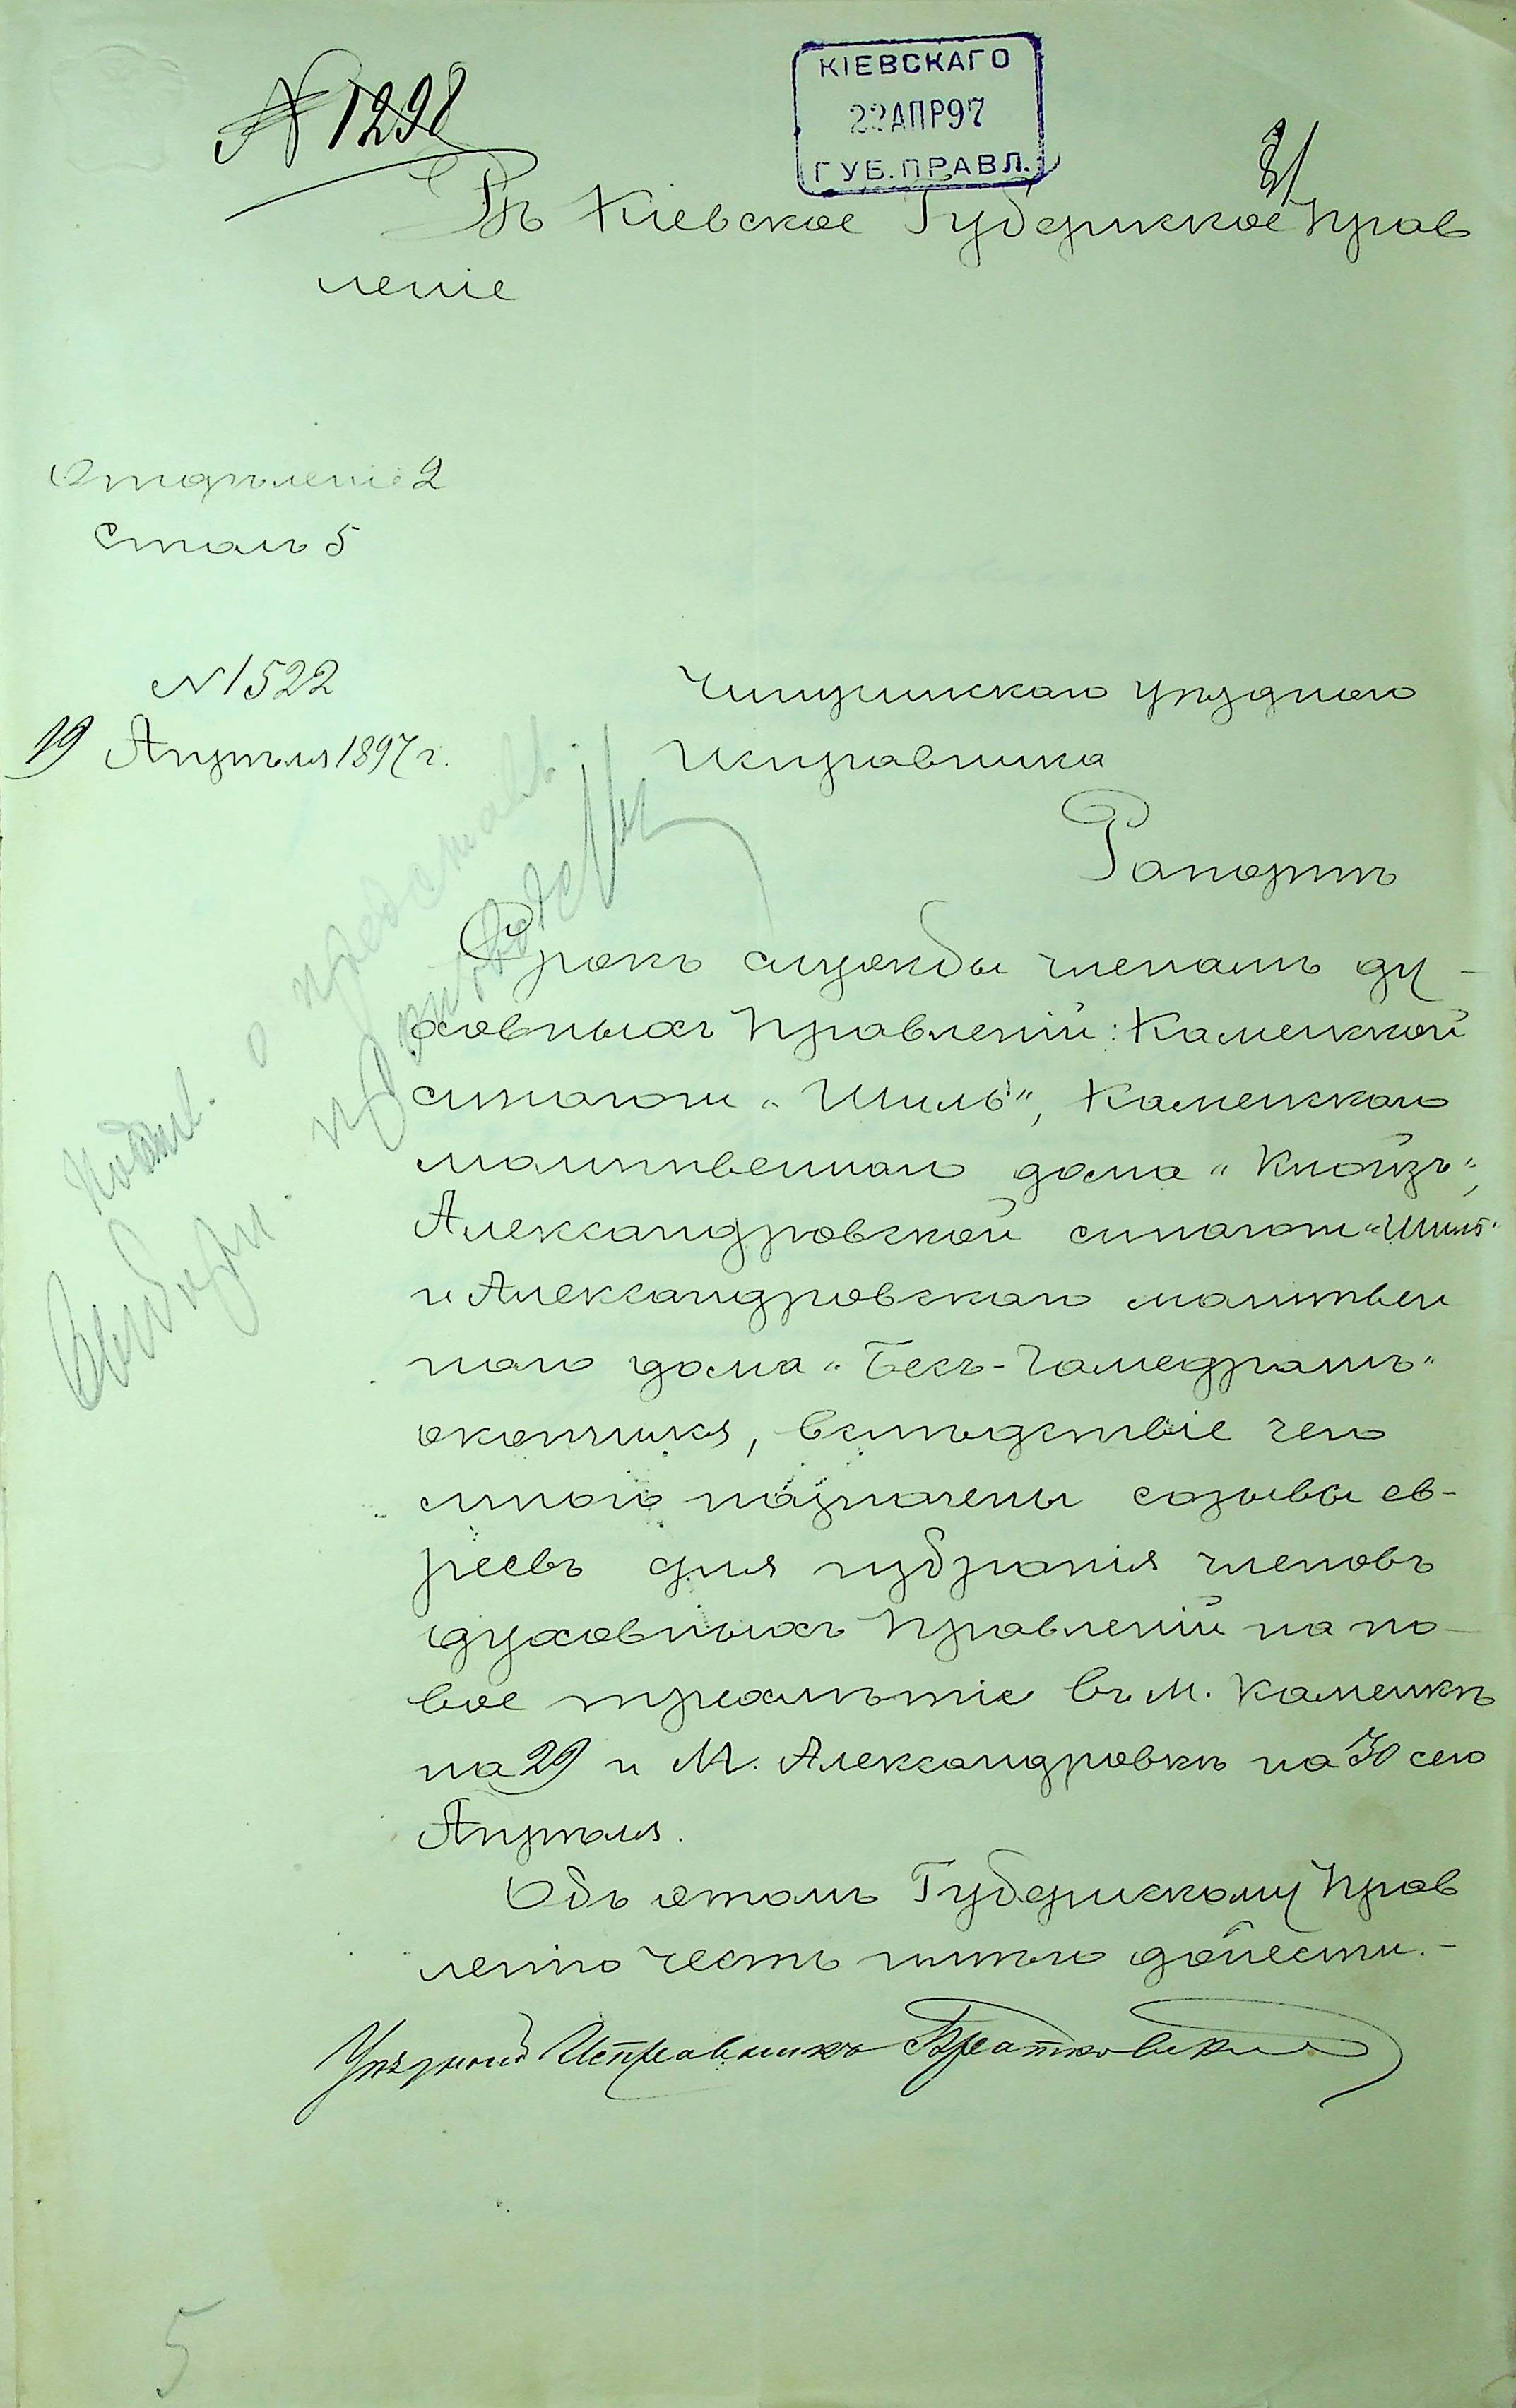 № 1298
КІЕВСКАГО
22 АПР 97
ГУБ. ПРАВЛ.
31
Въ Кіевское Губернское Прав
леніе
Отдѣленіе 2
Столъ 5
№ 1522
19 Апрѣля 1897 г.
Чигиринскаго уѣзднаго
Исправника
Рапортъ
Срокъ службы членамъ ду-
ховныхъ Правленій: Каменской
синагоги „Шиль", Каменскаго
молитвеннаго дома „Клойзъ",
Александровской синагоги „Шиль"
и Александровскаго молитвен
наго дома „Бесъ-Гамедрашъ"
окончился, вслѣдствіе чего
мною назначены созывы ев-
реевъ для избранія членовъ
духовныхъ Правленій на но-
вое трехлѣтіе въ м. Каменкѣ
на 29 и м. Александровкѣ на 30 сего
Апрѣля.
Объ этомъ Губернскому Прав
ленію честь имѣю донести.-
Уѣздный Исправникъ Братковскій
о представл.
5